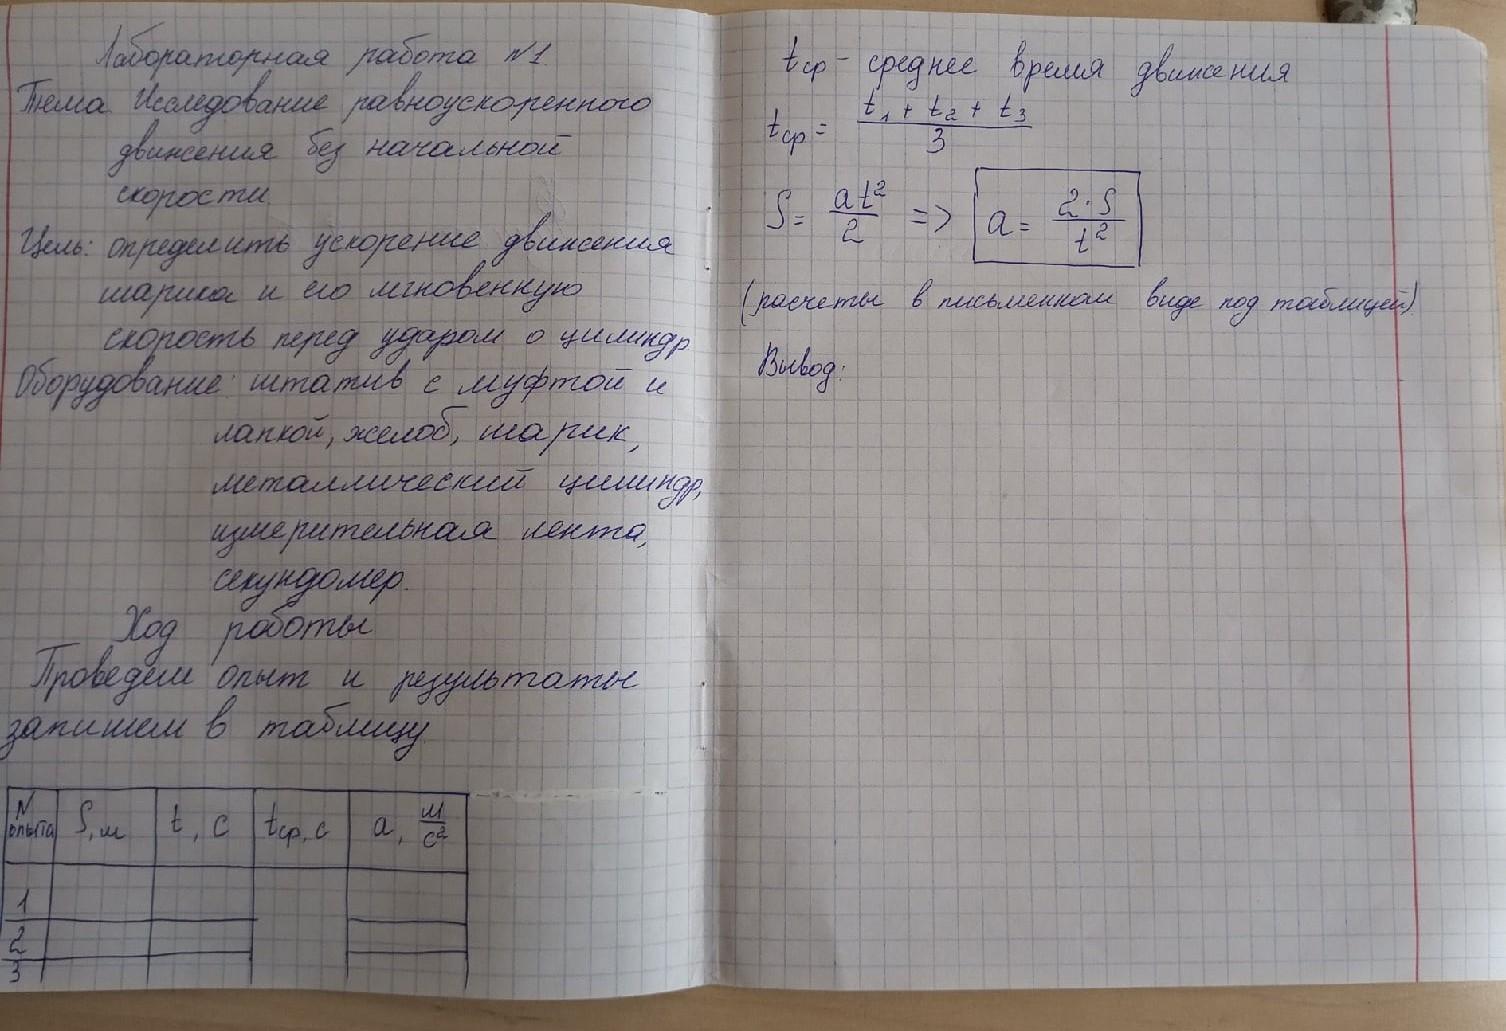 Лабораторная работа №1
Тема. Исследование равноускоренного
движения без начальной
скорости.
Цель: определить ускорение движения
шарика и его мгновенную
скорость перед ударом о цилиндр
Оборудование: штатив с муфтой и
лапкой, желоб, шарик,
металлический цилиндр,
измерительная лента,
секундомер.
Ход работы
Проведем опыт и результаты
запишем в таблицу.
N опыта S, м t, с tср, с a, м/с²
1
2
3
tср - среднее время движения
tср = (t₁ + t₂ + t₃)/3
S = at²/2 => a = 2·S/t²
(расчеты в письменном виде под таблицей)
Вывод: